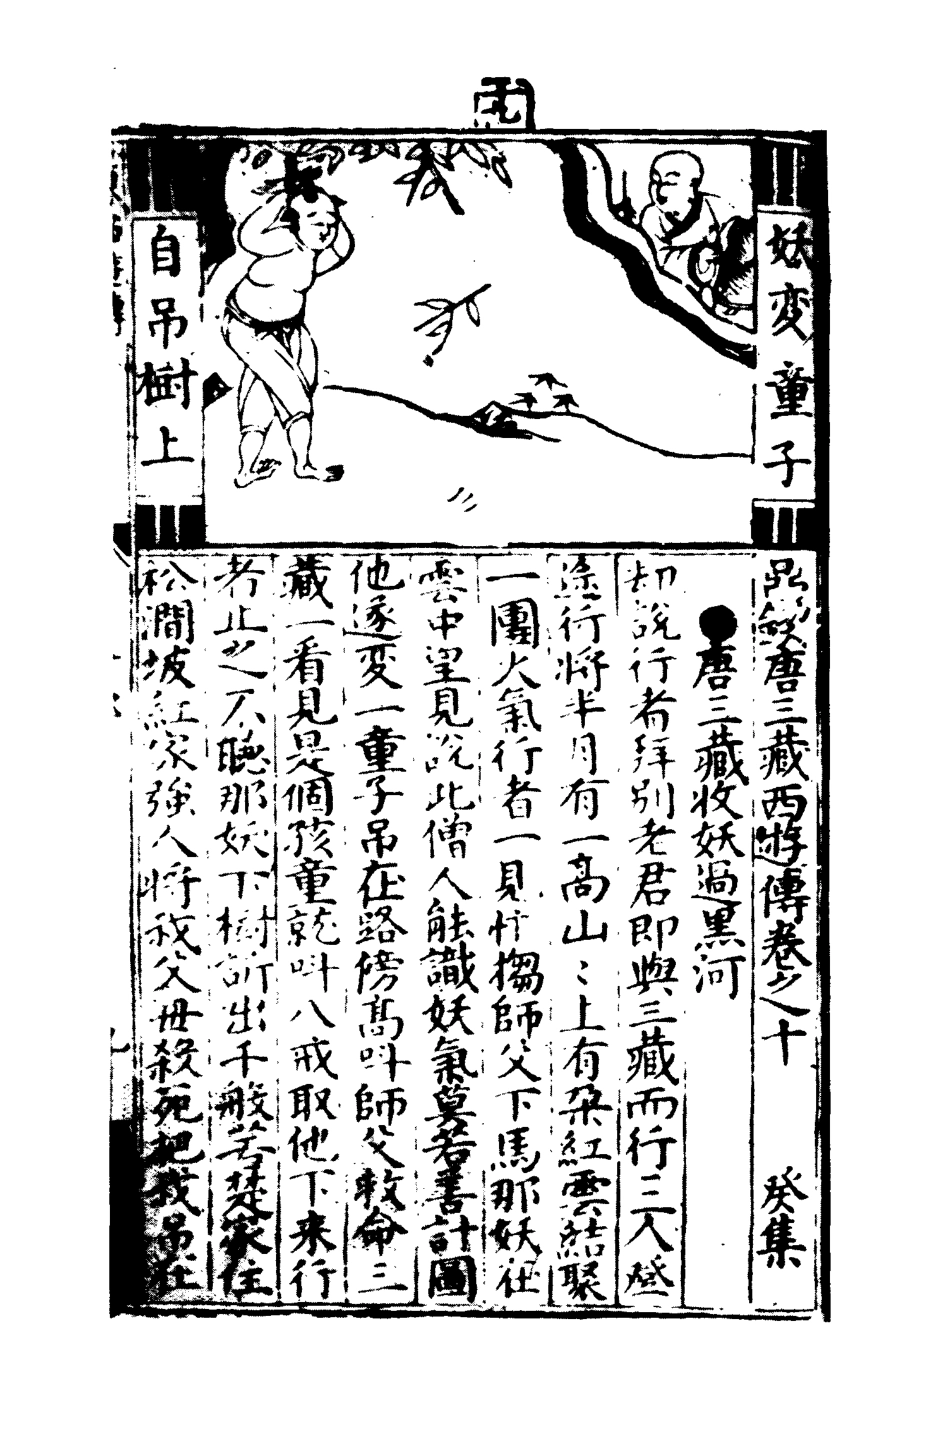 妖变童子
自吊樹上
鼎鍥唐三藏西遊傳卷之十 癸集
唐三藏收妖過黑河
却說行者拜別老君即與三藏而行三人登
途行將半月有一高山〻上有朶紅雲結聚
一團火氣行者一見忙搊師父下馬那妖在
雲中望見說此僧人能識妖氣莫若善計圖
他遂变一童子吊在路傍高呌師父救命三
藏一看見是個孩童就呌八戒取他下来行
者止之不聽那妖下樹訴出千般苦楚家住
松澗坡紅家強人將我父毋殺死把我吊在